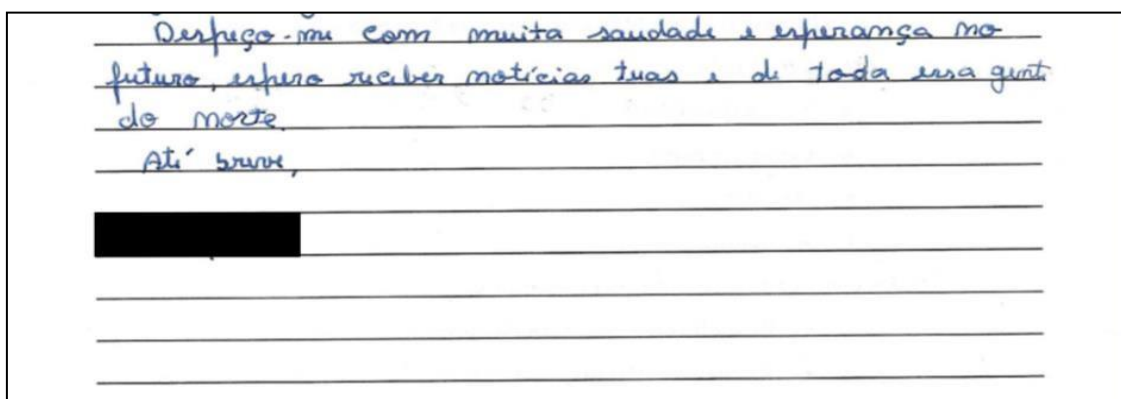 Despeço-me com muita saudade e esperança no
futuro, espero receber notícias tuas e de toda essa gente
do norte.
Até breve,